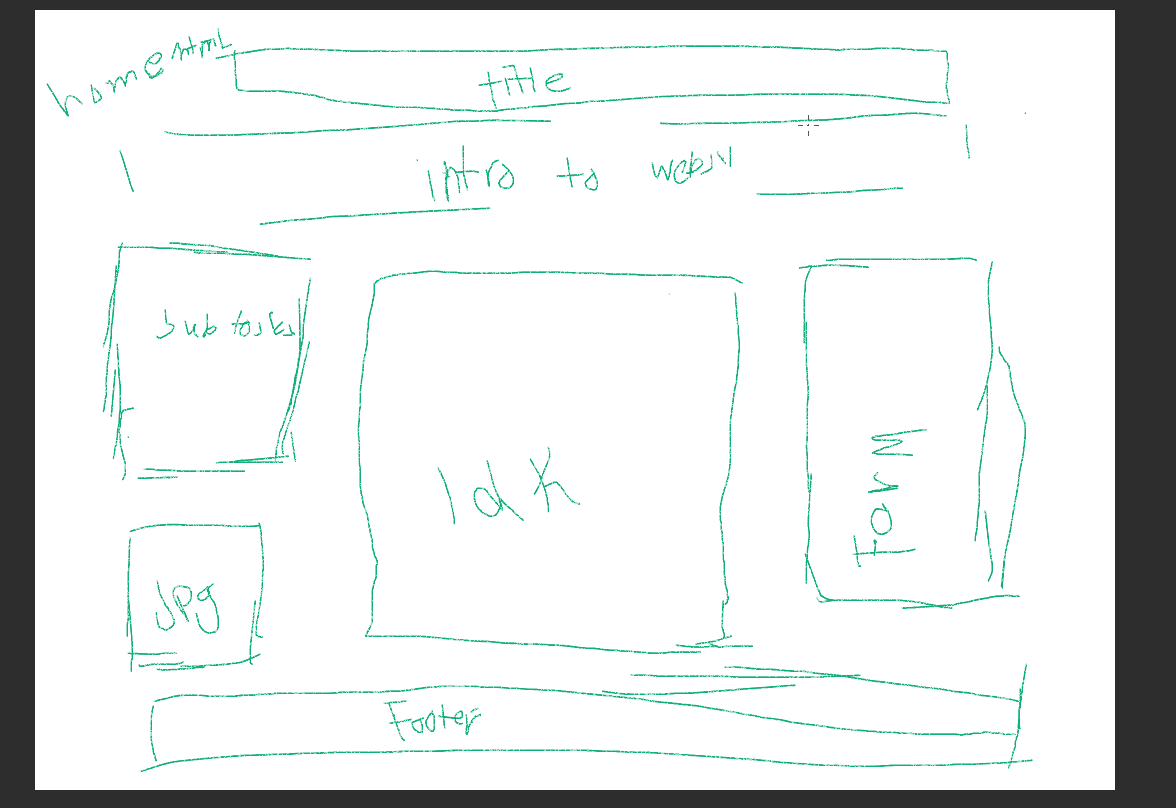 home html
title
intro to
sub tasks
Idk
form
JPg
Footer